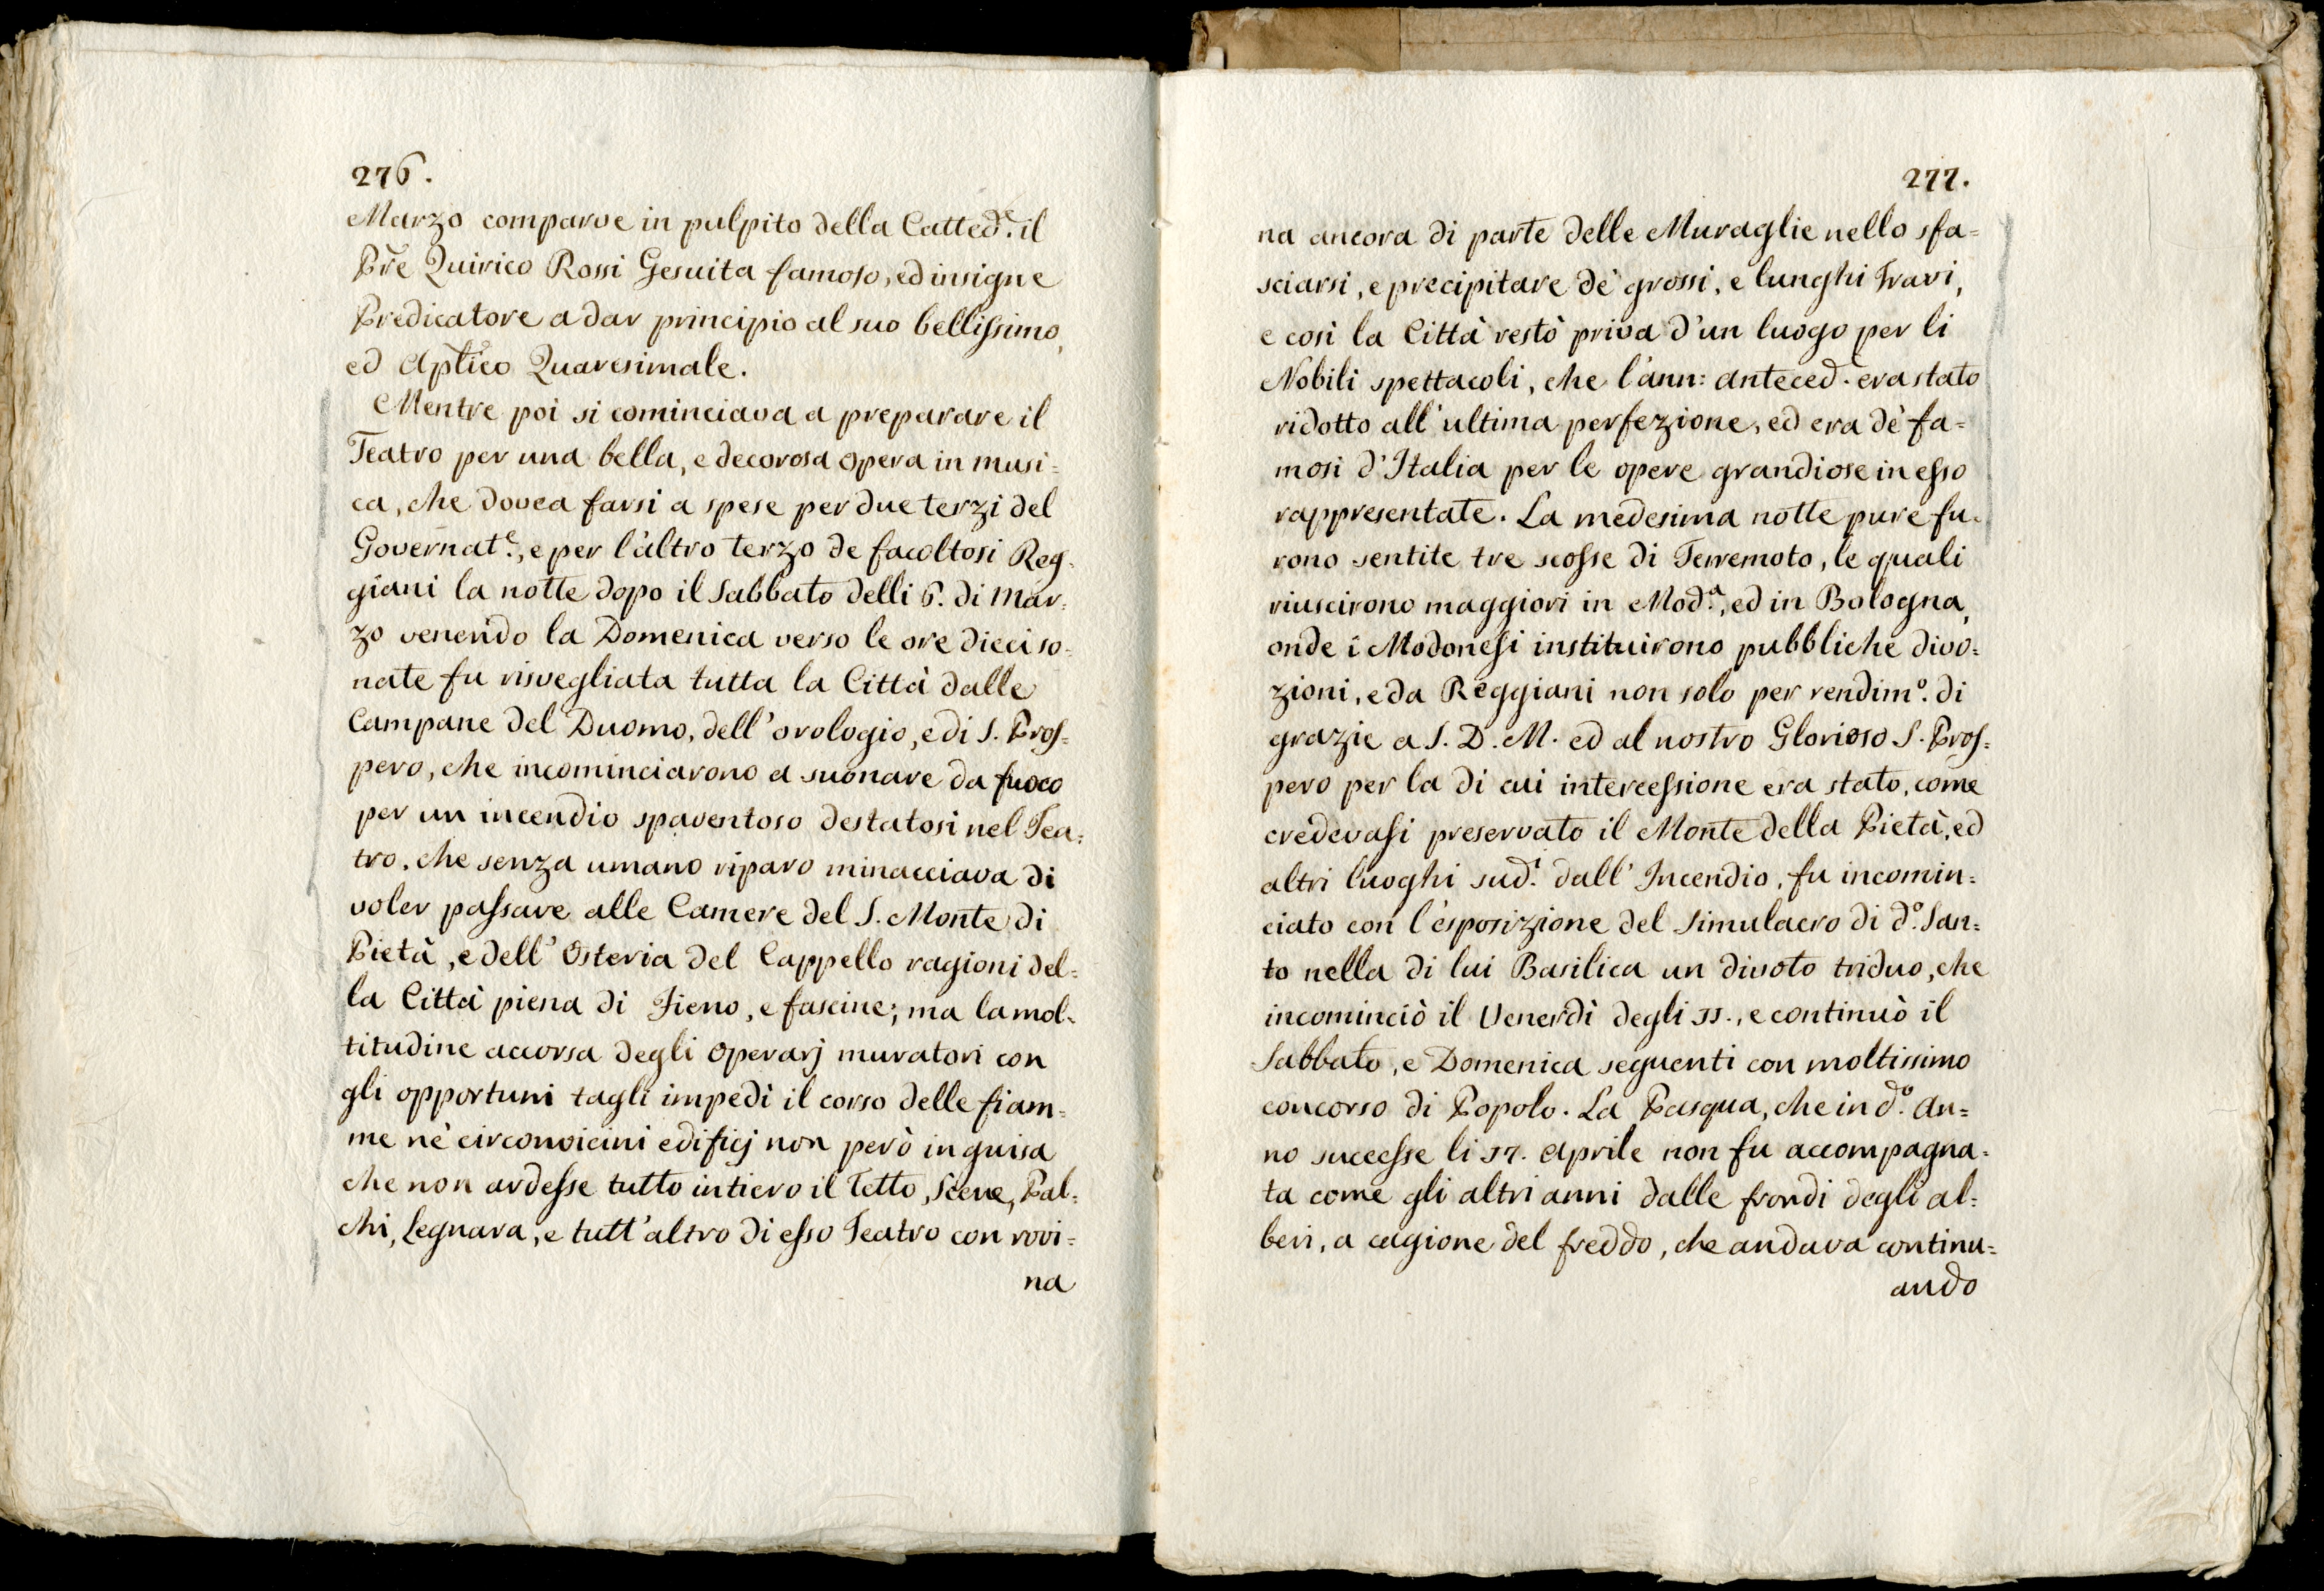 276.
Marzo comparve in pulpito della Catted.e il
Pre Quirico Rossi Gesuita famoso, ed insigne
Predicatore a dar principio al suo bellissimo,
ed Aptico Quaresimale.
Mentre poi si cominciava a preparare il
Teatro per una bella, e decorosa opera in musi=
ca, che dovea farsi a spese per due terzi del
Governat.e, e per l'altro terzo de facoltosi Reg=
giani la notte dopo il Sabbato delli 6. di Mar=
zo venendo la Domenica verso le ore dieci so=
nate fu risvegliata tutta la Città dalle
Campane del Duomo, dell'orologio, e di S. Pros=
pero, che incominciarono a suonare da fuoco
per un incendio spaventoso destatosi nel Tea=
tro, che senza umano riparo minacciava di
voler passare alle Camere del S. Monte di
Pietà, e dell'Osteria del Cappello ragioni del=
la Città piena di Fieno, e fascine; ma la mol=
titudine accorsa degli operarj muratori con
gli opportuni tagli impedì il corso delle fiam=
me ne' circonvicini edificj non però in guisa
che non ardesse tutto intiero il Tetto, Scene, Pal=
chi, Legnara, e tutt'altro di esso Teatro con rovi=
na
277.
na ancora di parte delle Muraglie nello sfa=
sciarsi, e precipitare de' grossi, e lunghi Travi,
e così la Città restò priva d'un luogo per li
Nobili spettacoli, che l'ann: anteced.e era stato
ridotto all'ultima perfezione, ed era de' fa=
mosi d'Italia per le opere grandiose in esso
rappresentate. La medesima notte pure fu=
rono sentite tre scosse di Terremoto, le quali
riuscirono maggiori in Mod.a, ed in Bologna,
onde i Modonesi instituirono pubbliche divo=
zioni, e da Reggiani non solo per rendim.o di
grazie a S. D. M. ed al nostro Glorioso S. Pros=
pero per la di cui intercessione era stato, come
credevasi preservato il Monte della Pietà, ed
altri luoghi sud.i dall'Incendio, fu incomin=
ciato con l'esposizione del Simulacro di d.o San=
to nella di lui Basilica un divoto triduo, che
incominciò il Venerdì degli 11., e continuò il
Sabbato, e Domenica seguenti con moltissimo
concorso di Popolo. La Pasqua, che in d.o An=
no successe li 17. Aprile non fu accompagna=
ta come gli altri anni dalle frondi degli al=
beri, a cagione del freddo, che andava continu=
ando